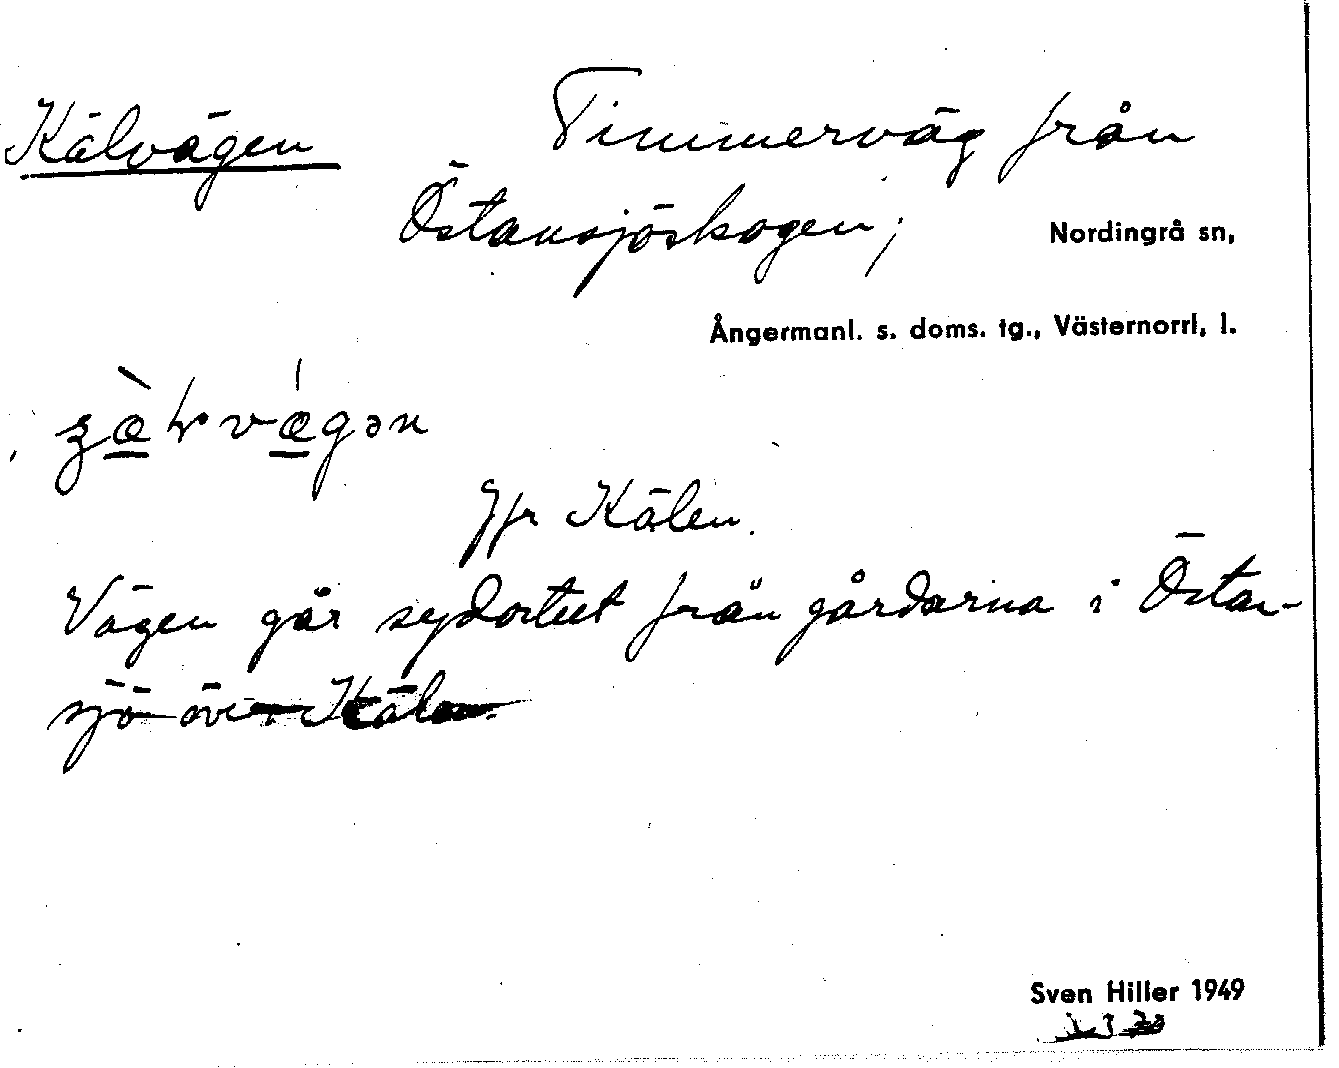 Kälvägen
Timmerväg från
Östansjöskogen;
Nordingrå sn,
Ångermanl. s. doms. tg., Västernorrl. l.
Jfr Kälen.
Vägen går sydostut från gårdarna i Östan-
sjö över Kälen.
Sven Hiller 1949